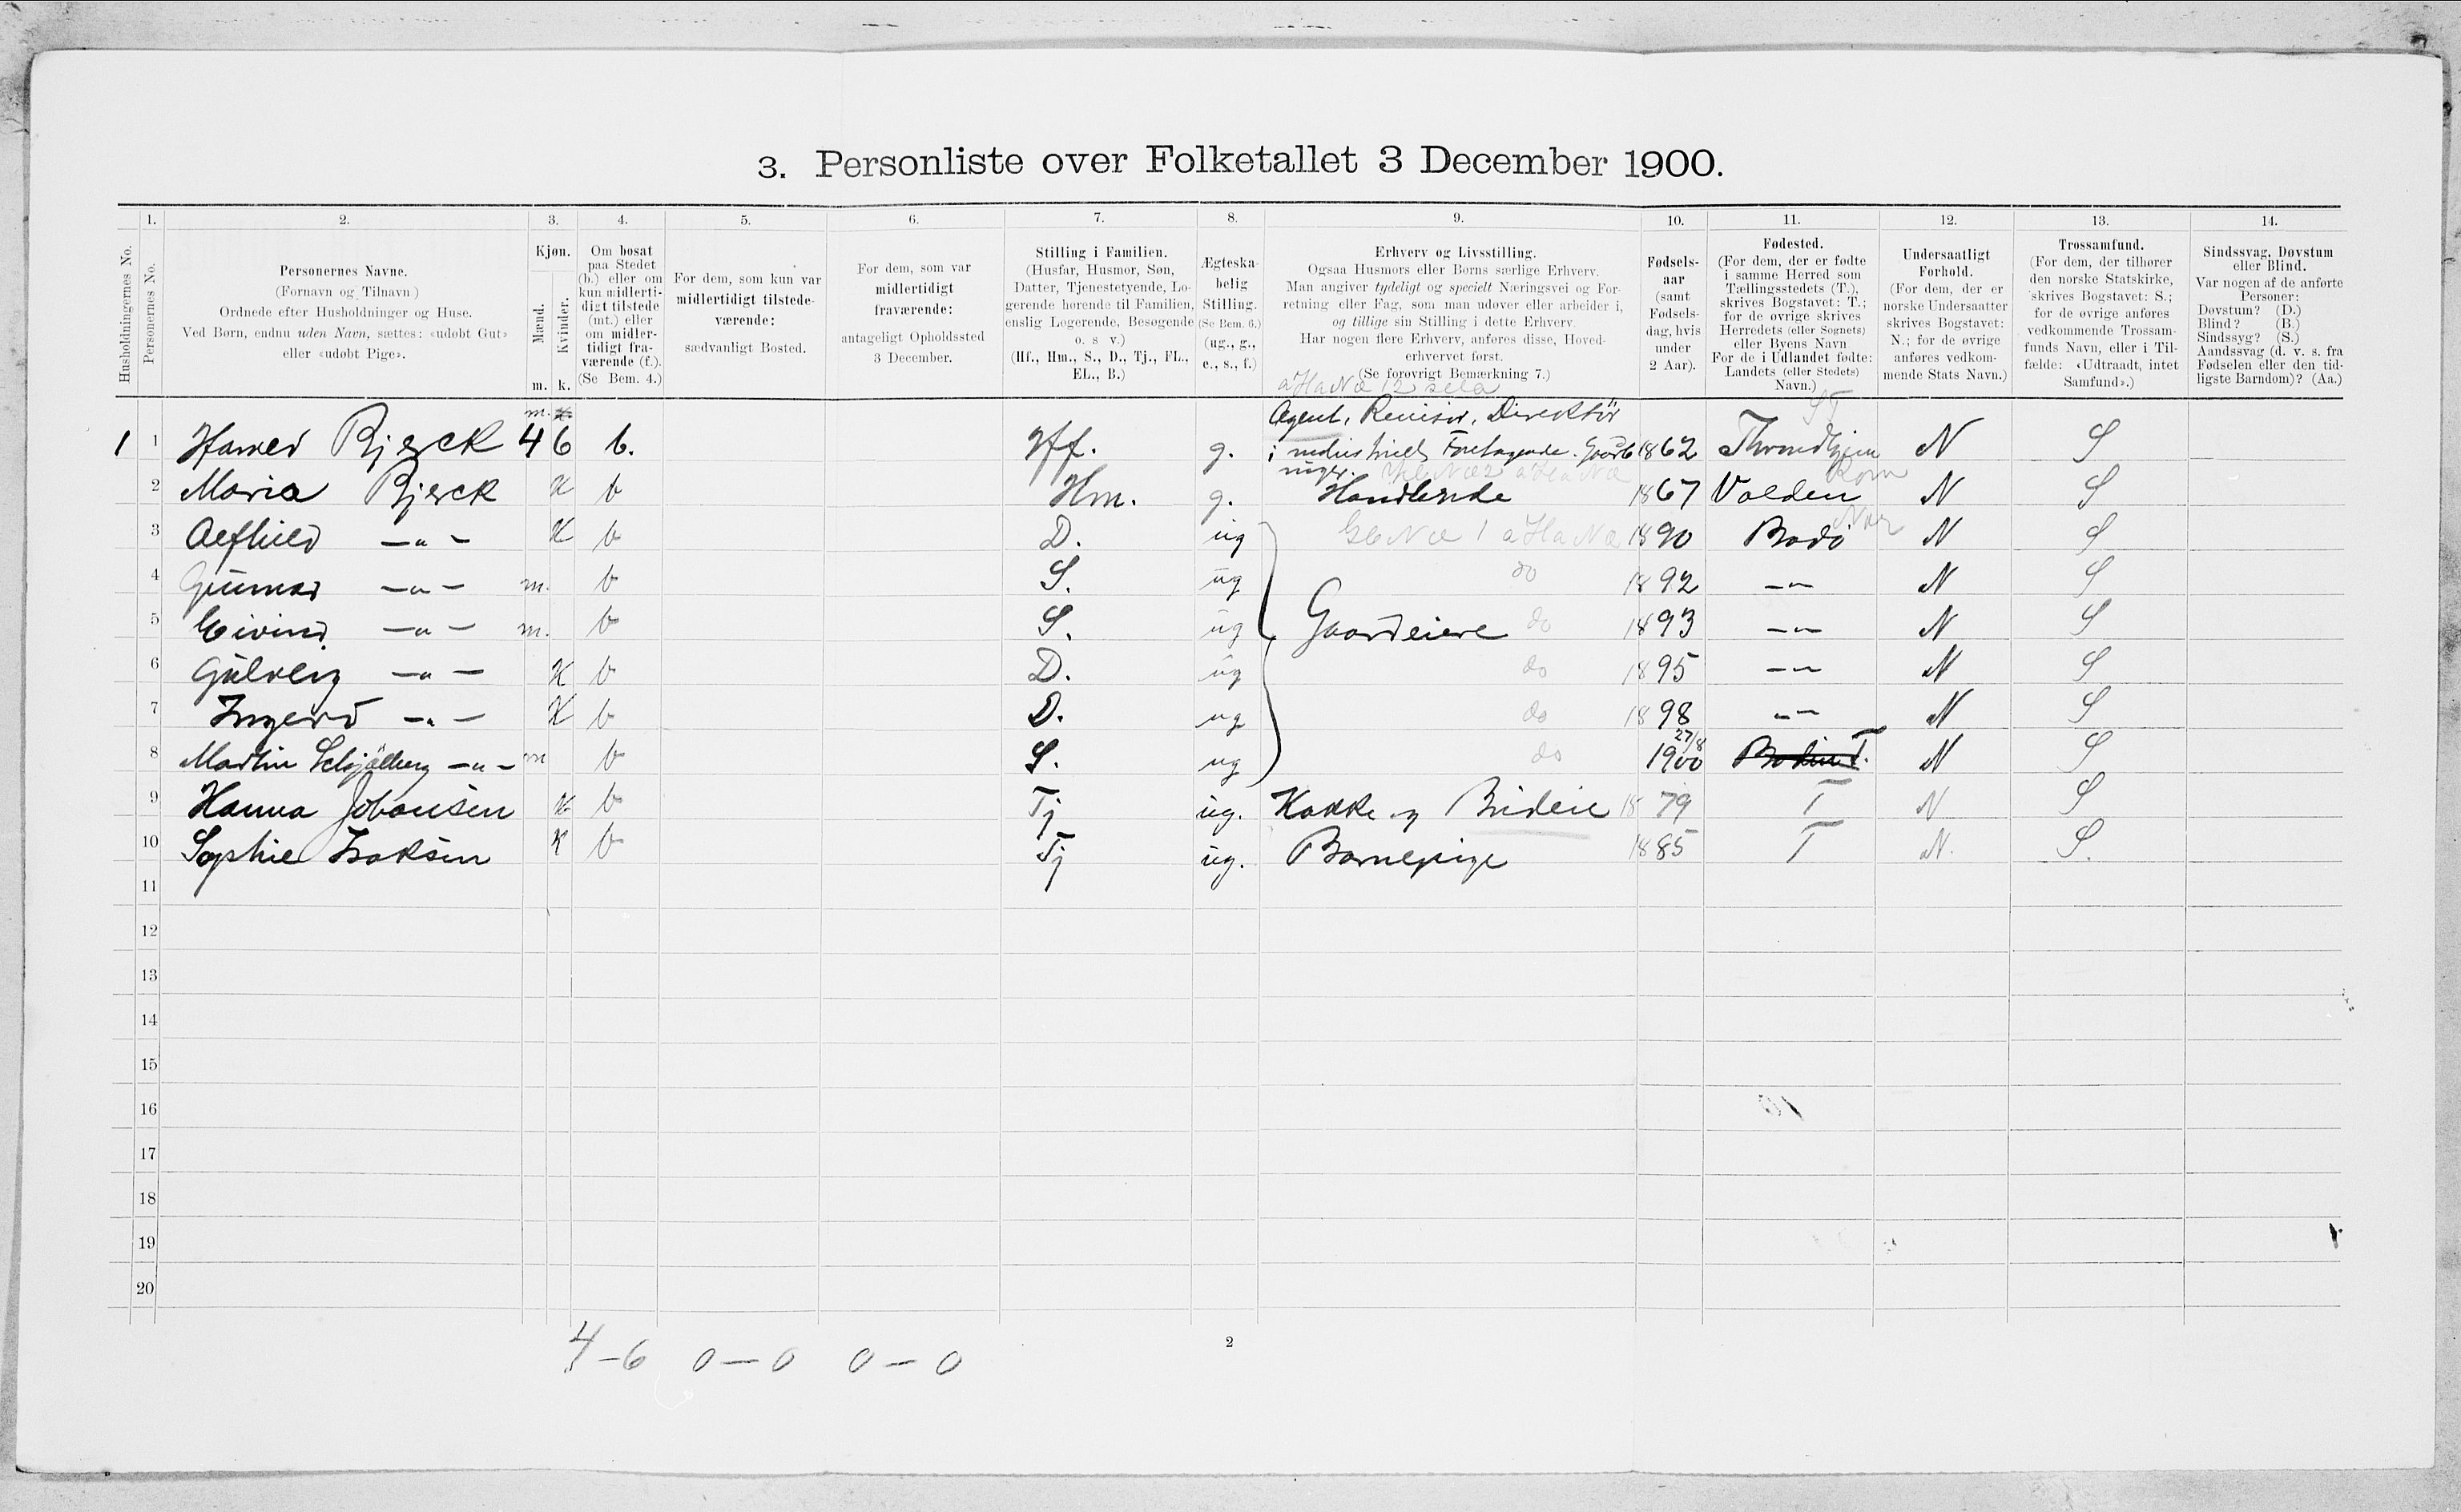 3. Personliste over Folketallet 3 December 1900.
1. 2. 3. 4. 5. 6. 7. 8. 9. 10. 11. 12. 13. 14.
Husholdningernes No.
Personernes No.
Personernes Navne.
(Fornavn og Tilnavn )
Ordnede efter Husholdninger og Huse.
Ved Børn, endnu uden Navn, sættes: «udøbt Gut»
eller «udøbt Pige».
Kjøn.
Mænd.
Kvinder.
m. k.
Om bosat
paa Stedet
(b.) eller om
kun midlerti-
digt tilstede
(mt.) eller
om midler-
tidigt fra-
værende (f.).
(Se Bem. 4.)
For dem, som kun var
midlertidigt tilstede-
værende:
sædvanligt Bosted.
For dem, som var
midlertidigt
fraværende:
antageligt Opholdssted
3 December.
Stilling i Familien.
(Husfar, Husmor, Søn,
Datter, Tjenestetyende, Lo-
gerende hørende til Familien,
enslig Logerende, Besøgende
o. s v.)
(Hf., Hm., S., D., Tj., FL.,
EL., B.)
Ægteska-
belig
Stilling.
(Se Bem. 6.)
(ug., g.,
e., s., f.)
Erhverv og Livsstilling.
Ogsaa Husmors eller Børns særlige Erhverv.
Man angiver tydeligt og specielt Næringsvei og For-
retning eller Fag, som man udøver eller arbeider i,
og tillige sin Stilling i dette Erhverv.
Har nogen flere Erhverv, anføres disse, Hoved-
erhvervet først.
(Se forøvrigt Bemærkning 7.)
Fødsels-
aar
(samt
Fødsels-
dag, hvis
under
2 Aar).
Fødested.
(For dem, der er fødte
i samme Herred som
Tællingsstedets (T.),
skrives Bogstavet: T.;
for de øvrige skrives
Herredets (eller Sognets)
eller Byens Navn.
For de i Udlandet fødte:
Landets (eller Stedets)
Navn.)
Undersaatligt
Forhold.
(For dem, der er
norske Undersaatter
skrives Bogstavet:
N.; for de øvrige
anføres vedkom-
mende Stats Navn.)
Trossamfund.
(For dem, der tilhører
den norske Statskirke,
skrives Bogstavet: S.;
for de øvrige anføres
vedkommende Trossam-
funds Navn, eller i Til-
fælde: «Udtraadt, intet
Samfund».)
Sindssvag, Døvstum
eller Blind.
Var nogen af de anførte
Personer:
Døvstum? (D.)
Blind? (B.)
Sindssyg? (S.)
Aandssvag (d. v. s. fra
Fødselen eller den tid-
ligste Barndom)? (Aa.)
Agent, Revisor, Direktör
1 1 Bjerck 4 6 b. Hf. g. i 1862 Throndhjem N S
2 Maria Bjerck K b Hm. g. Handlende 1867 N S
3 —„— K b D. ug 1890 Bodö N S
4 Gunnar —„— m. b S. ug do 1892 —„— N S
5 Eivind —„— m. b S. ug Gaardeiere do 1893 —„— N S
6 —„— K b D. ug do 1895 —„— N S
7 Ingerd —„— K b D. ug do 1898 —„— N S
27/8
8 Martin —„— m b S. ug do 1900 T. N S
9 Hanna Johansen K b Tj ug. Kokke og Budeie 1879 T N S
10 Sophie Isaksen K b Tj ug. Barnepige 1885 T N. S.
11
12
13
14
15
16
17
18
19
20
4-6 0-0 0-0
2